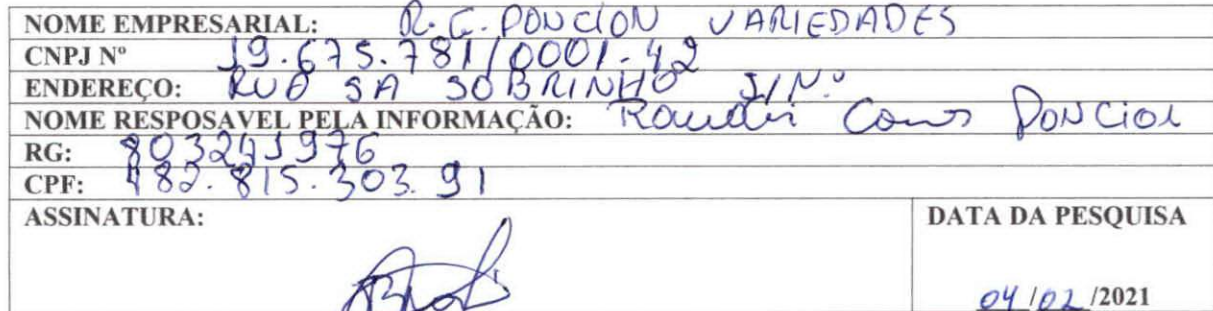 NOME EMPRESARIAL: R.G. PONCION VARIEDADES
CNPJ Nº 19.675.781/0001-42
ENDEREÇO: RUA SA SOBRINHO S/Nº
NOME RESPOSAVEL PELA INFORMAÇÃO: PONCION
RG:
CPF: 482.815.303.91
ASSINATURA: DATA DA PESQUISA
04/02/2021